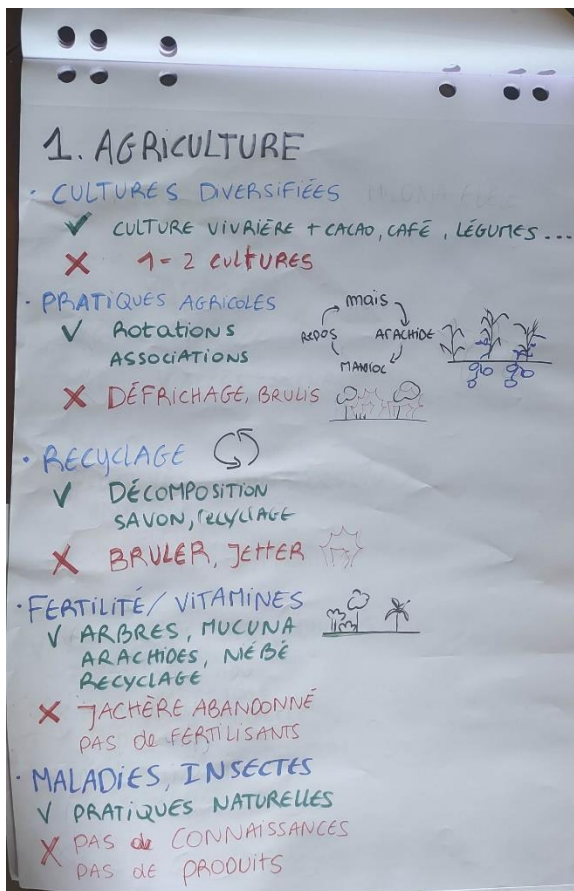 1. AGRICULTURE
· CULTURES DIVERSIFIÉES
✓ CULTURE VIVRIÈRE + CACAO, CAFÉ, LÉGUMES ...
✗ 1-2 CULTURES
· PRATIQUES AGRICOLES
✓ ROTATIONS
ASSOCIATIONS
mais
ARACHIDE
MANIOC
REPOS
✗ DÉFRICHAGE, BRULIS
· RECYCLAGE
✓ DÉCOMPOSITION
SAVON, recyclAGE
✗ BRULER, JETTER
· FERTILITÉ / VITAMINES
✓ ARBRES, MUCUNA
ARACHIDES, NIÉBÉ
RECYCLAGE
✗ JACHÈRE ABANDONNÉ
PAS de FERTILISANTS
· MALADIES, INSECTES
✓ PRATIQUES NATURELLES
✗ PAS de CONNAISSANCES
PAS DE PRODUITS